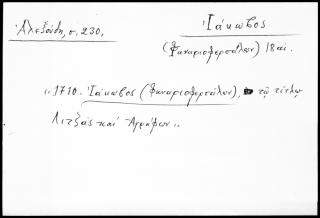 Ἀλεξούδη, σ. 230,
Ἰάκωβος
(Φαναριοφερσάλων) 18 αἰ.
«1710. Ἰάκωβος (Φαναριοφερσάλων), τῷ τίτλῳ
Λιτζᾶς καί Ἀγράφων».